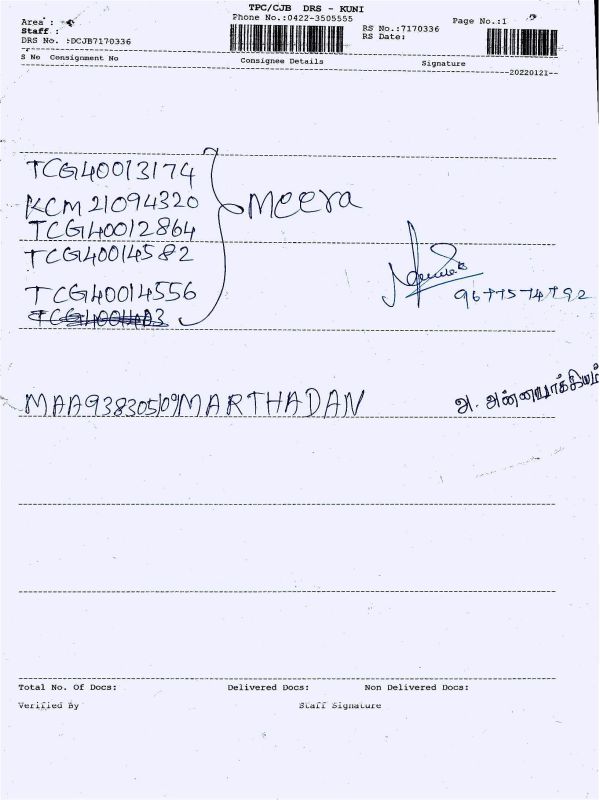 TPC/CJB DRS - KUNI
Area :
Phone No.:0422-3505555
Page No.:1
Staff :
RS No.:7170336
DRS No. :DCJB7170336
RS Date:
S No Consignment No
Consignee Details
Signature
20220121--
TCG40013174
KCM21094320
Meera
TCG40012864
TCG40014582
TCG40014556
MAA938305109 MARTHADAN
Total No. Of Docs:
Delivered Docs:
Non Delivered Docs:
Verified By
Staff Signature